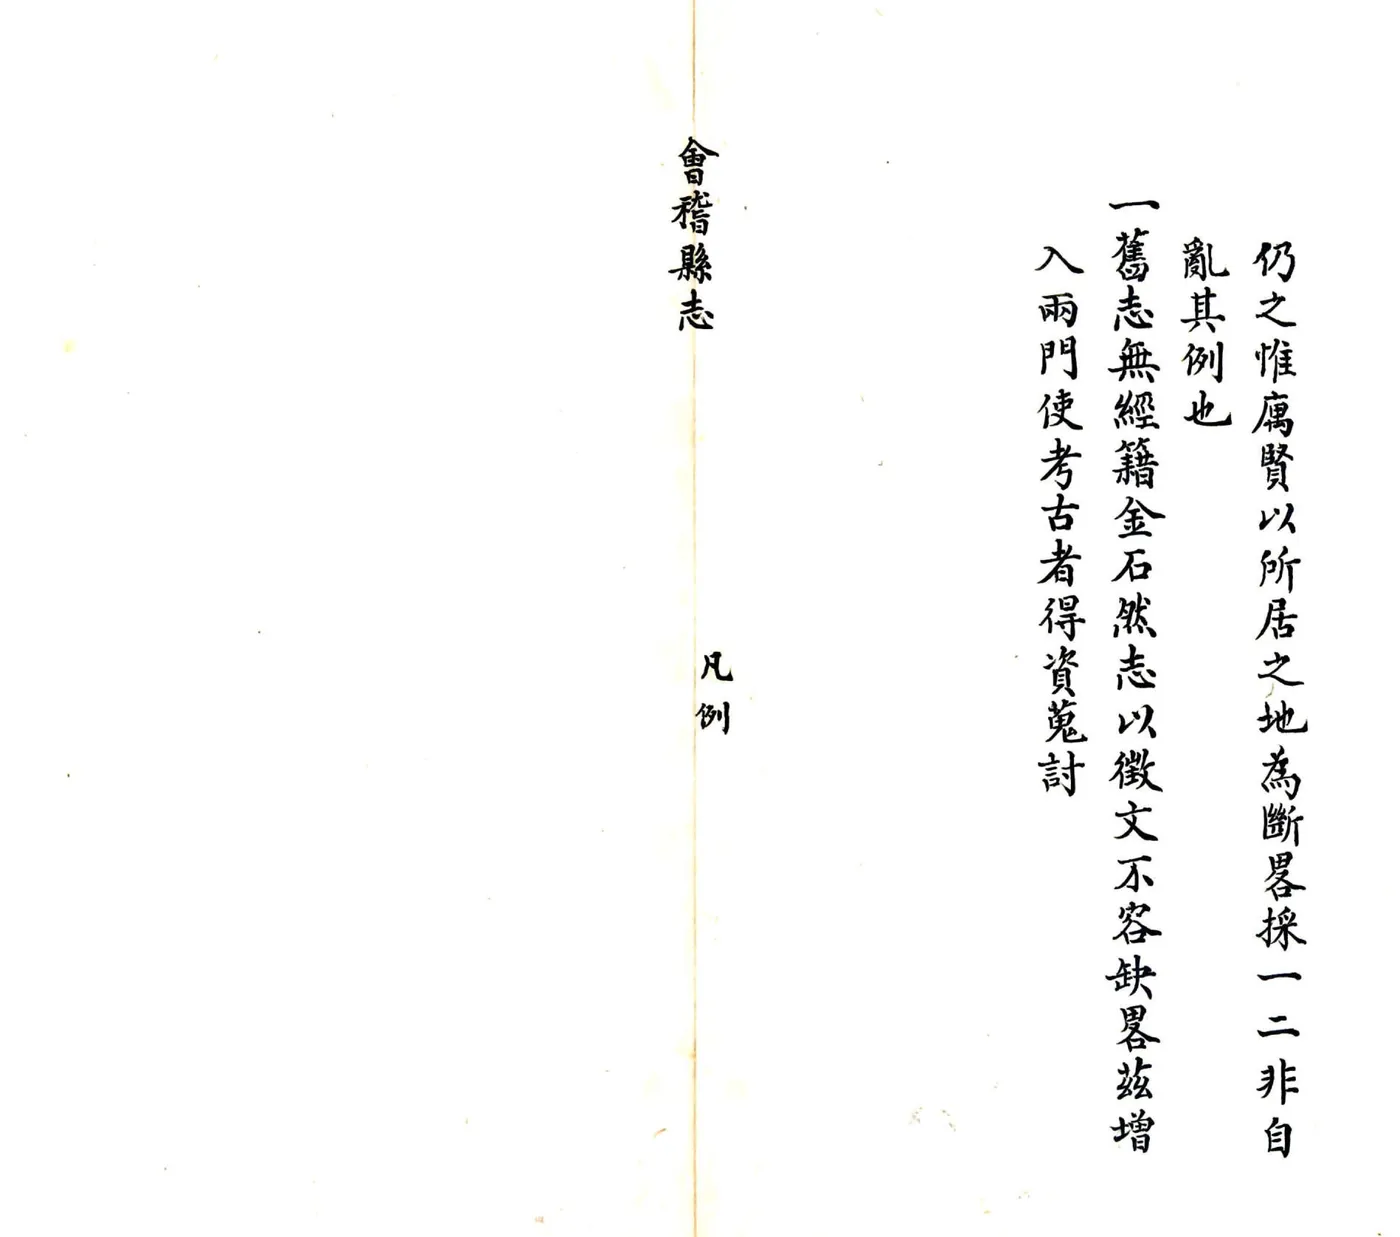 仍之惟寓賢以所居之地為斷畧採一二非自
亂其例也
一舊志無經籍金石然志以徵文不容缺畧茲增
入兩門使考古者得資蒐討
會稽縣志
凡例